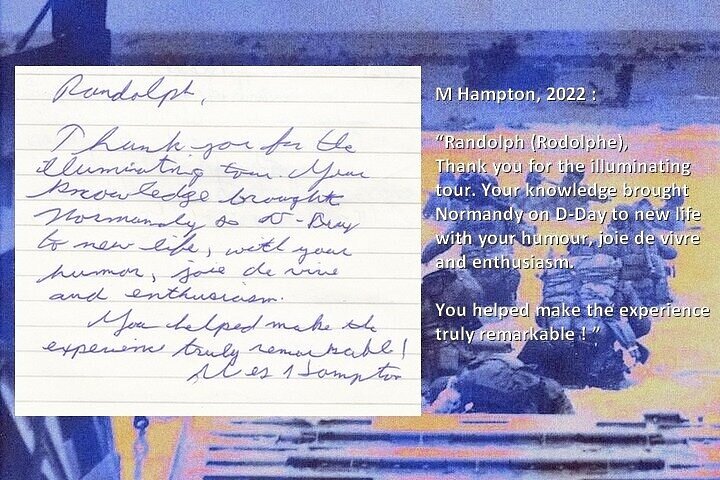 Randolph,
Thank you for the
illuminating tour. Your
knowledge brought
Normandy on D-Day
to new life, with your
humor, joie de vivre
and enthusiasm.
You helped make the
experience truly remarkable!
Hampton
M Hampton, 2022 :
“Randolph (Rodolphe),
Thank you for the illuminating
tour. Your knowledge brought
Normandy on D-Day to new life
with your humour, joie de vivre
and enthusiasm.
You helped make the experience
truly remarkable ! ”